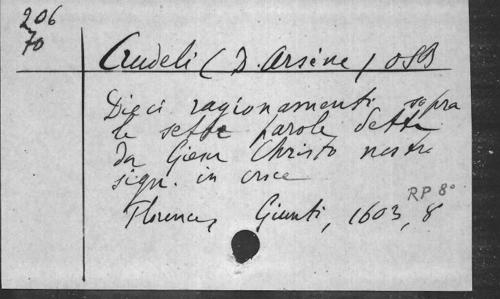 206
70
Crudeli (D. Arsène) OSB
Dieci ragionamenti sopra
le sette parole dette
da Giesu Christo nostro
sign. in croce
RP 8°
Florence, Giunti, 1603, 8